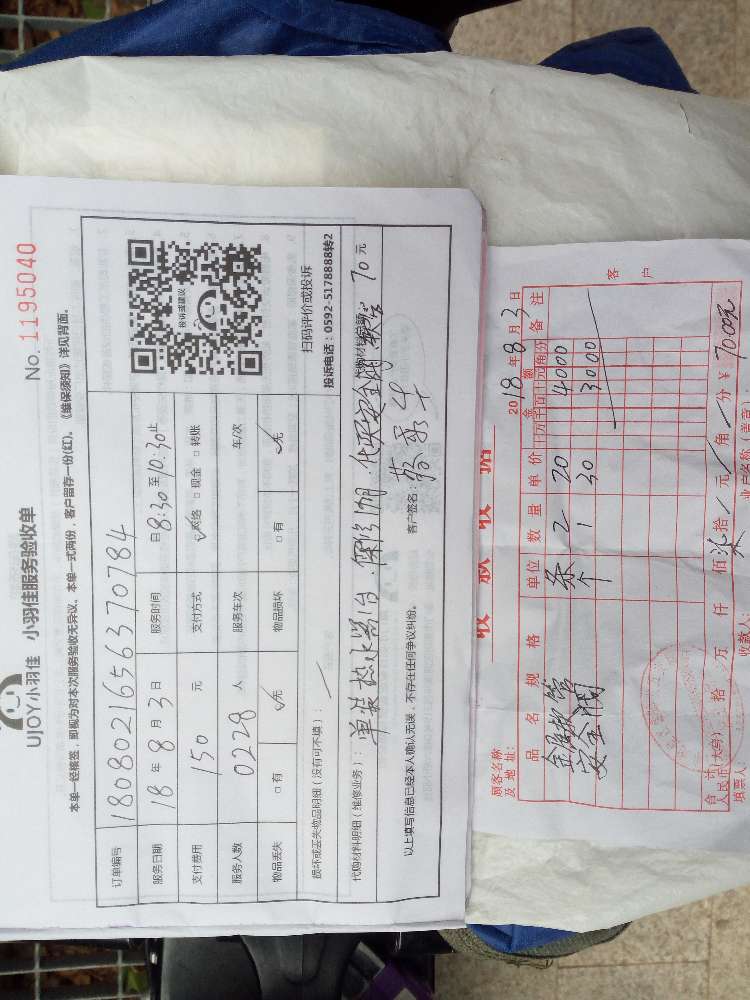 No. 1195040
UJOY小羽佳 小羽佳服务验收单
本单一经核签，即视为对本次服务验收无异议。本单一式两份，客户留存一份(红)。《维保须知》详见背面。
订单编号 1808021656370784
服务日期 18 年 8 月 3 日 服务时间 日 8:30 至 10:30 止
支付费用 150 元 支付方式 ☑网络 □现金 □转账
服务人数 0228 人 服务车次 车/次
物品丢失 □有 ☑无 物品损坏 □有 ☑无
投诉或建议
扫码评价或投诉
投诉电话：0592-5178888转2
损坏或丢失物品明细（没有可不填）：
代购材料明细（维修业务）：单装热水器1台 代买安全阀 软管 70 元
以上填写信息已经本人确认无误，不存在任何争议纠纷。 客户签名：
收款收据
2018 年 8 月 3 日
顾客名称
及地址：
品名 规格 单位 数量 单价 金额 备注
十万千百十元角分
金属软管 条 2 20 4000
安全阀 个 1 30 3000
合计
人民币(大写)：拾 万 仟 佰 柒拾 元 角 分 ￥ 70.00元
填票人 收款人：
客户